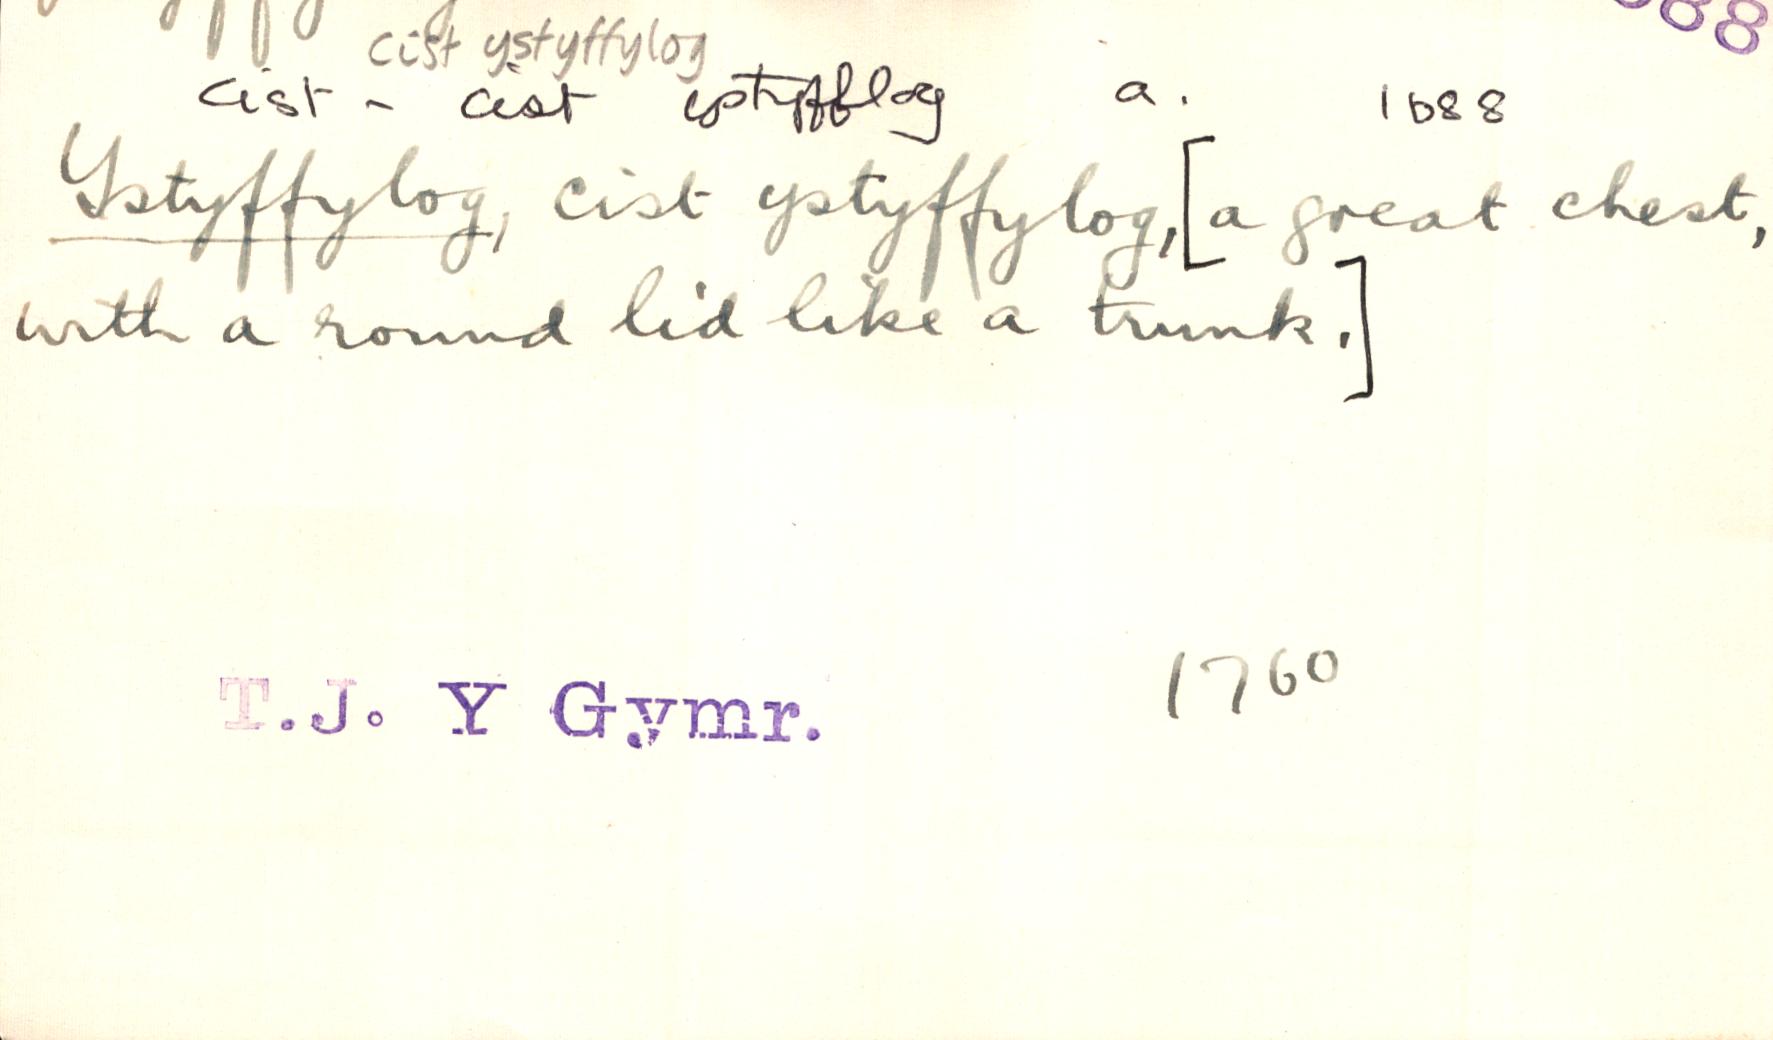 88
cist ystyffylog
cist - cist ystyfflog a. 1688
Ystyffylog, cist ystyffylog, [a great chest,
with a round lid like a trunk.]
T.J. Y Gymr. 1760